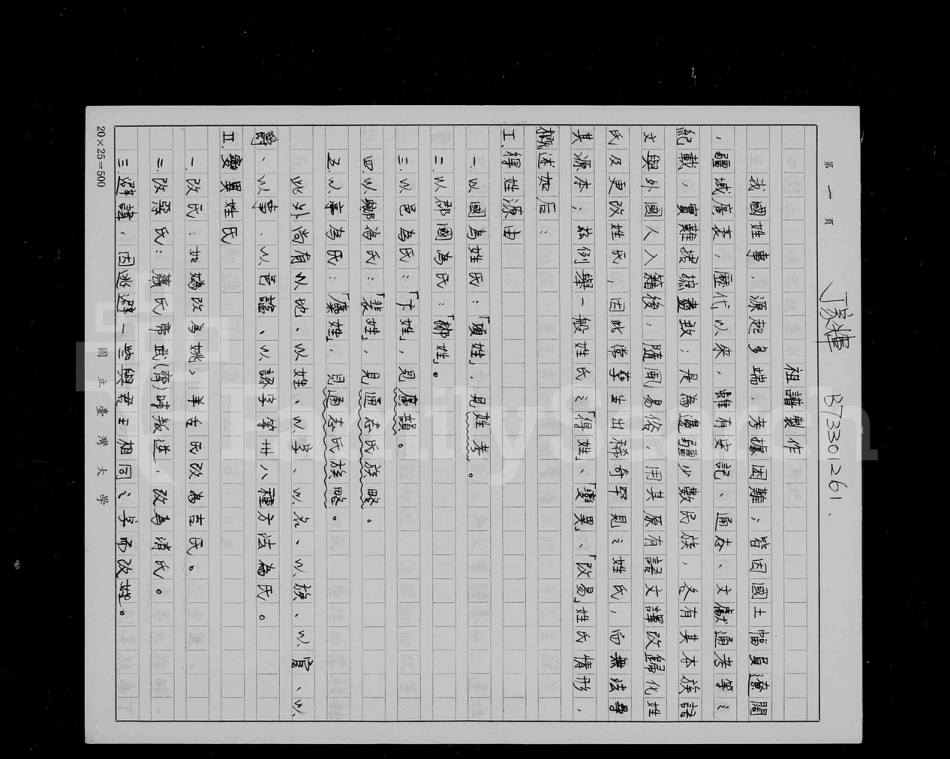 第一頁
B73301261.
祖譜製作
我國姓事,源起多端,考據困難,皆因國土幅員遼闊
,疆域廣袤,歷代以來,雖有史記、通志、文獻通考等之
紀載,實難搜摭盡致;是為邊疆少數民族,各有其本族語
文與外國人入籍後,隨風易俗,用其原有語文譯改歸化姓
氏及更改姓氏,因此滋孳生出稀奇罕見之姓氏,而無法尋
其源本;茲例舉一般姓氏之「得姓」、「變異」、「改易」姓氏情形,
概述如后:
I.得姓源由
一.以國為姓氏:「項姓」,見姓考。
二.以郡國為氏:「柳姓」。
三.以邑為氏:「卞姓」,見廣韻。
四.以鄉為氏:「裴姓」,見通志氏族略。
五.以亭為氏:「麋姓」,見通志氏族略。
此外尚有以地、以姓、以字、以名、以族、以官、以
爵、以事、以邑諡、以諡字等卅八種方法為氏。
II.變異姓氏
一.改氏:如媯改為姚,羊舌氏改為吉氏。
二.改惡氏:蕭氏帝武(齊)時叛逆,改為蛸氏。
三.避諱:因逃避一些與君王相同之字而改姓。
20×25=500
國立臺灣大學
FamilySearch